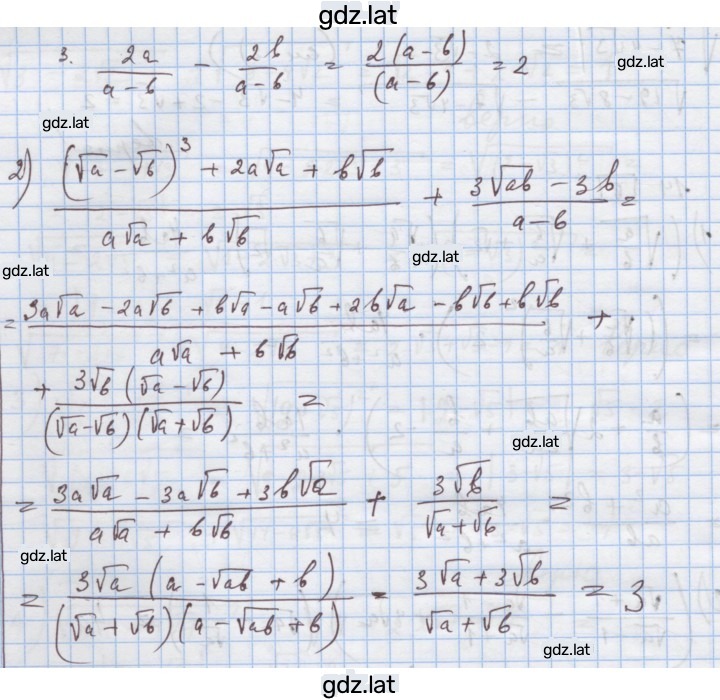 gdz.lat
3. 2a/(a-b) - 2b/(a-b) = 2(a-b)/(a-b) = 2
gdz.lat
gdz.lat
2) ((√a - √b)³ + 2a√a + b√b)/(a√a + b√b) + (3√ab - 3b)/(a-b) =
gdz.lat
gdz.lat
= (3a√a - 2a√b + b√a - a√b + 2b√a - b√b + b√b)/(a√a + b√b) +
+ 3√b(√a - √b)/((√a-√b)(√a+√b)) =
gdz.lat
= (3a√a - 3a√b + 3b√a)/(a√a + b√b) + 3√b/(√a+√b) =
gdz.lat
= 3√a(a - √ab + b)/((√a + √b)(a - √ab + b)) - (3√a + 3√b)/(√a + √b) = 3.
gdz.lat
gdz.lat